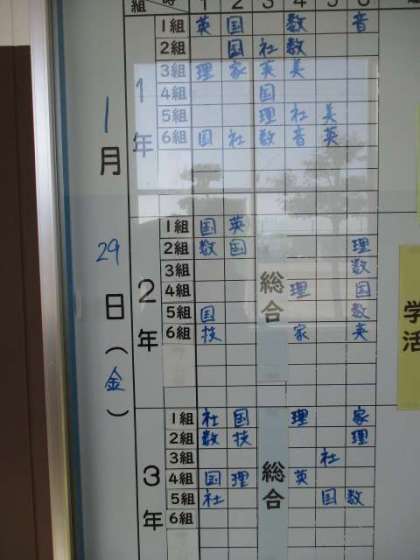 組 時 1 2 3 4 5 6
1月29日(金)
1年
1組 英 国 数 音
2組 国 社 数
3組 理 家 英 美
4組 国
5組 理 社 美
6組 国 社 数 音 英
2年
総合
1組 国 英
2組 数 国 理
3組 数
4組 理 国
5組 国 数
6組 技 家 英
学活
3年
総合
1組 社 国 理 家
2組 数 技 理
3組 社
4組 国 理 英
5組 社 国 数
6組